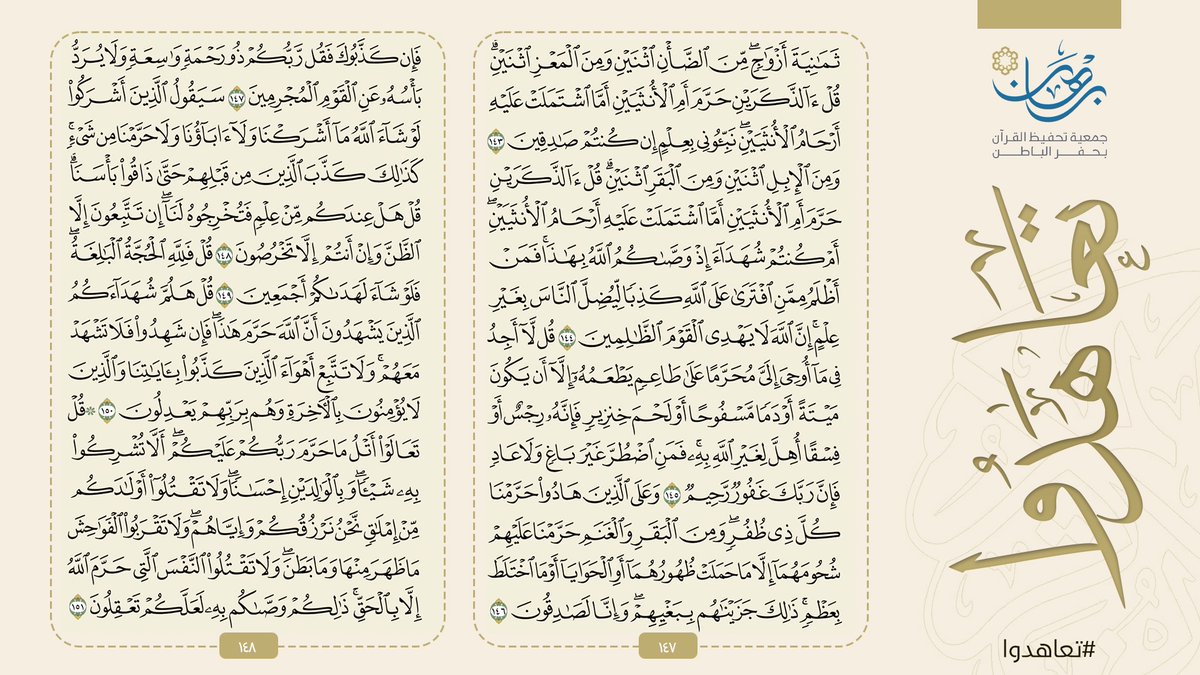 ثَمَٰنِيَةَ أَزْوَٰجٍۖ مِّنَ ٱلضَّأْنِ ٱثْنَيْنِ وَمِنَ ٱلْمَعْزِ ٱثْنَيْنِۗ
قُلْ ءَآلذَّكَرَيْنِ حَرَّمَ أَمِ ٱلْأُنثَيَيْنِ أَمَّا ٱشْتَمَلَتْ عَلَيْهِ
أَرْحَامُ ٱلْأُنثَيَيْنِۖ نَبِّـُٔونِى بِعِلْمٍ إِن كُنتُمْ صَٰدِقِينَ ١٤٣
وَمِنَ ٱلْإِبِلِ ٱثْنَيْنِ وَمِنَ ٱلْبَقَرِ ٱثْنَيْنِۗ قُلْ ءَآلذَّكَرَيْنِ
حَرَّمَ أَمِ ٱلْأُنثَيَيْنِ أَمَّا ٱشْتَمَلَتْ عَلَيْهِ أَرْحَامُ ٱلْأُنثَيَيْنِۖ
أَمْ كُنتُمْ شُهَدَآءَ إِذْ وَصَّىٰكُمُ ٱللَّهُ بِهَٰذَاۚ فَمَنْ
أَظْلَمُ مِمَّنِ ٱفْتَرَىٰ عَلَى ٱللَّهِ كَذِبًا لِّيُضِلَّ ٱلنَّاسَ بِغَيْرِ
عِلْمٍۚ إِنَّ ٱللَّهَ لَا يَهْدِى ٱلْقَوْمَ ٱلظَّٰلِمِينَ ١٤٤ قُل لَّآ أَجِدُ
فِى مَآ أُوحِىَ إِلَىَّ مُحَرَّمًا عَلَىٰ طَاعِمٍ يَطْعَمُهُۥٓ إِلَّآ أَن يَكُونَ
مَيْتَةً أَوْ دَمًا مَّسْفُوحًا أَوْ لَحْمَ خِنزِيرٍ فَإِنَّهُۥ رِجْسٌ أَوْ
فِسْقًا أُهِلَّ لِغَيْرِ ٱللَّهِ بِهِۦۚ فَمَنِ ٱضْطُرَّ غَيْرَ بَاغٍ وَلَا عَادٍ
فَإِنَّ رَبَّكَ غَفُورٌ رَّحِيمٌ ١٤٥ وَعَلَى ٱلَّذِينَ هَادُوا۟ حَرَّمْنَا
كُلَّ ذِى ظُفُرٍۖ وَمِنَ ٱلْبَقَرِ وَٱلْغَنَمِ حَرَّمْنَا عَلَيْهِمْ
شُحُومَهُمَآ إِلَّا مَا حَمَلَتْ ظُهُورُهُمَآ أَوِ ٱلْحَوَايَآ أَوْ مَا ٱخْتَلَطَ
بِعَظْمٍۚ ذَٰلِكَ جَزَيْنَٰهُم بِبَغْيِهِمْۖ وَإِنَّا لَصَٰدِقُونَ ١٤٦
١٤٧
فَإِن كَذَّبُوكَ فَقُل رَّبُّكُمْ ذُو رَحْمَةٍ وَٰسِعَةٍ وَلَا يُرَدُّ
بَأْسُهُۥ عَنِ ٱلْقَوْمِ ٱلْمُجْرِمِينَ ١٤٧ سَيَقُولُ ٱلَّذِينَ أَشْرَكُوا۟
لَوْ شَآءَ ٱللَّهُ مَآ أَشْرَكْنَا وَلَآ ءَابَآؤُنَا وَلَا حَرَّمْنَا مِن شَىْءٍۚ
كَذَٰلِكَ كَذَّبَ ٱلَّذِينَ مِن قَبْلِهِمْ حَتَّىٰ ذَاقُوا۟ بَأْسَنَاۗ
قُلْ هَلْ عِندَكُم مِّنْ عِلْمٍ فَتُخْرِجُوهُ لَنَآۖ إِن تَتَّبِعُونَ إِلَّا
ٱلظَّنَّ وَإِنْ أَنتُمْ إِلَّا تَخْرُصُونَ ١٤٨ قُلْ فَلِلَّهِ ٱلْحُجَّةُ ٱلْبَٰلِغَةُۖ
فَلَوْ شَآءَ لَهَدَىٰكُمْ أَجْمَعِينَ ١٤٩ قُلْ هَلُمَّ شُهَدَآءَكُمُ
ٱلَّذِينَ يَشْهَدُونَ أَنَّ ٱللَّهَ حَرَّمَ هَٰذَاۖ فَإِن شَهِدُوا۟ فَلَا تَشْهَدْ
مَعَهُمْۚ وَلَا تَتَّبِعْ أَهْوَآءَ ٱلَّذِينَ كَذَّبُوا۟ بِـَٔايَٰتِنَا وَٱلَّذِينَ
لَا يُؤْمِنُونَ بِٱلْـَٔاخِرَةِ وَهُم بِرَبِّهِمْ يَعْدِلُونَ ١٥٠ ۞ قُلْ
تَعَالَوْا۟ أَتْلُ مَا حَرَّمَ رَبُّكُمْ عَلَيْكُمْۖ أَلَّا تُشْرِكُوا۟
بِهِۦ شَيْـًٔاۖ وَبِٱلْوَٰلِدَيْنِ إِحْسَٰنًاۖ وَلَا تَقْتُلُوٓا۟ أَوْلَٰدَكُم
مِّنْ إِمْلَٰقٍۖ نَّحْنُ نَرْزُقُكُمْ وَإِيَّاهُمْۖ وَلَا تَقْرَبُوا۟ ٱلْفَوَٰحِشَ
مَا ظَهَرَ مِنْهَا وَمَا بَطَنَۖ وَلَا تَقْتُلُوا۟ ٱلنَّفْسَ ٱلَّتِى حَرَّمَ ٱللَّهُ
إِلَّا بِٱلْحَقِّۚ ذَٰلِكُمْ وَصَّىٰكُم بِهِۦ لَعَلَّكُمْ تَعْقِلُونَ ١٥١
١٤٨
برهان
جمعية تحفيظ القرآن
بحفر الباطن
تعاهدوا
#تعاهدوا